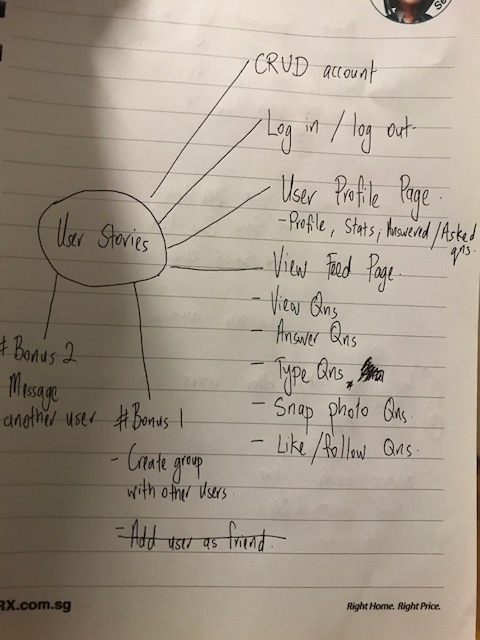 CRUD account
Log in / log out.
User Profile Page.
- Profile, Stats, Answered/Asked
qns.
User Stories
View Feed Page.
- View Qns
- Answer Qns
- Type Qns.
- Snap photo Qns.
- Like/follow Qns.
# Bonus 2
Message
another user
# Bonus 1
- Create group
with other users.
- Add user as friend.
RX.com.sg
Right Home. Right Price.